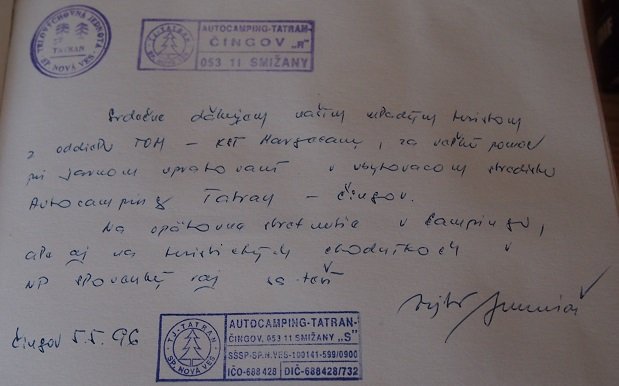 TELOVÝCHOVNÁ JEDNOTA
TATRAN
SP. NOVÁ VES
TJ-TATRAN
SP. NOVÁ VES
AUTOCAMPING-TATRAN-
ČINGOV „R"
053 11 SMIŽANY
Srdečne ďakujem vašim mladým turistom
z oddielu TOM – KST Margecany, za vašu pomoc
pri jarnom upratovaní v ubytovacom stredisku
Autocamping Tatran – Čingov.
Na opätovné stretnutie v campingu,
ale aj na turistických chodníkoch v
NP Slovenský raj sa teší
Čingov 5.5.96
TJ-TATRAN
SP. NOVÁ VES
AUTOCAMPING-TATRAN-
ČINGOV, 053 11 SMIŽANY „S"
SŠSP-SP.N.VES-100141-599/0900
IČO-688428 DIČ-688428/732